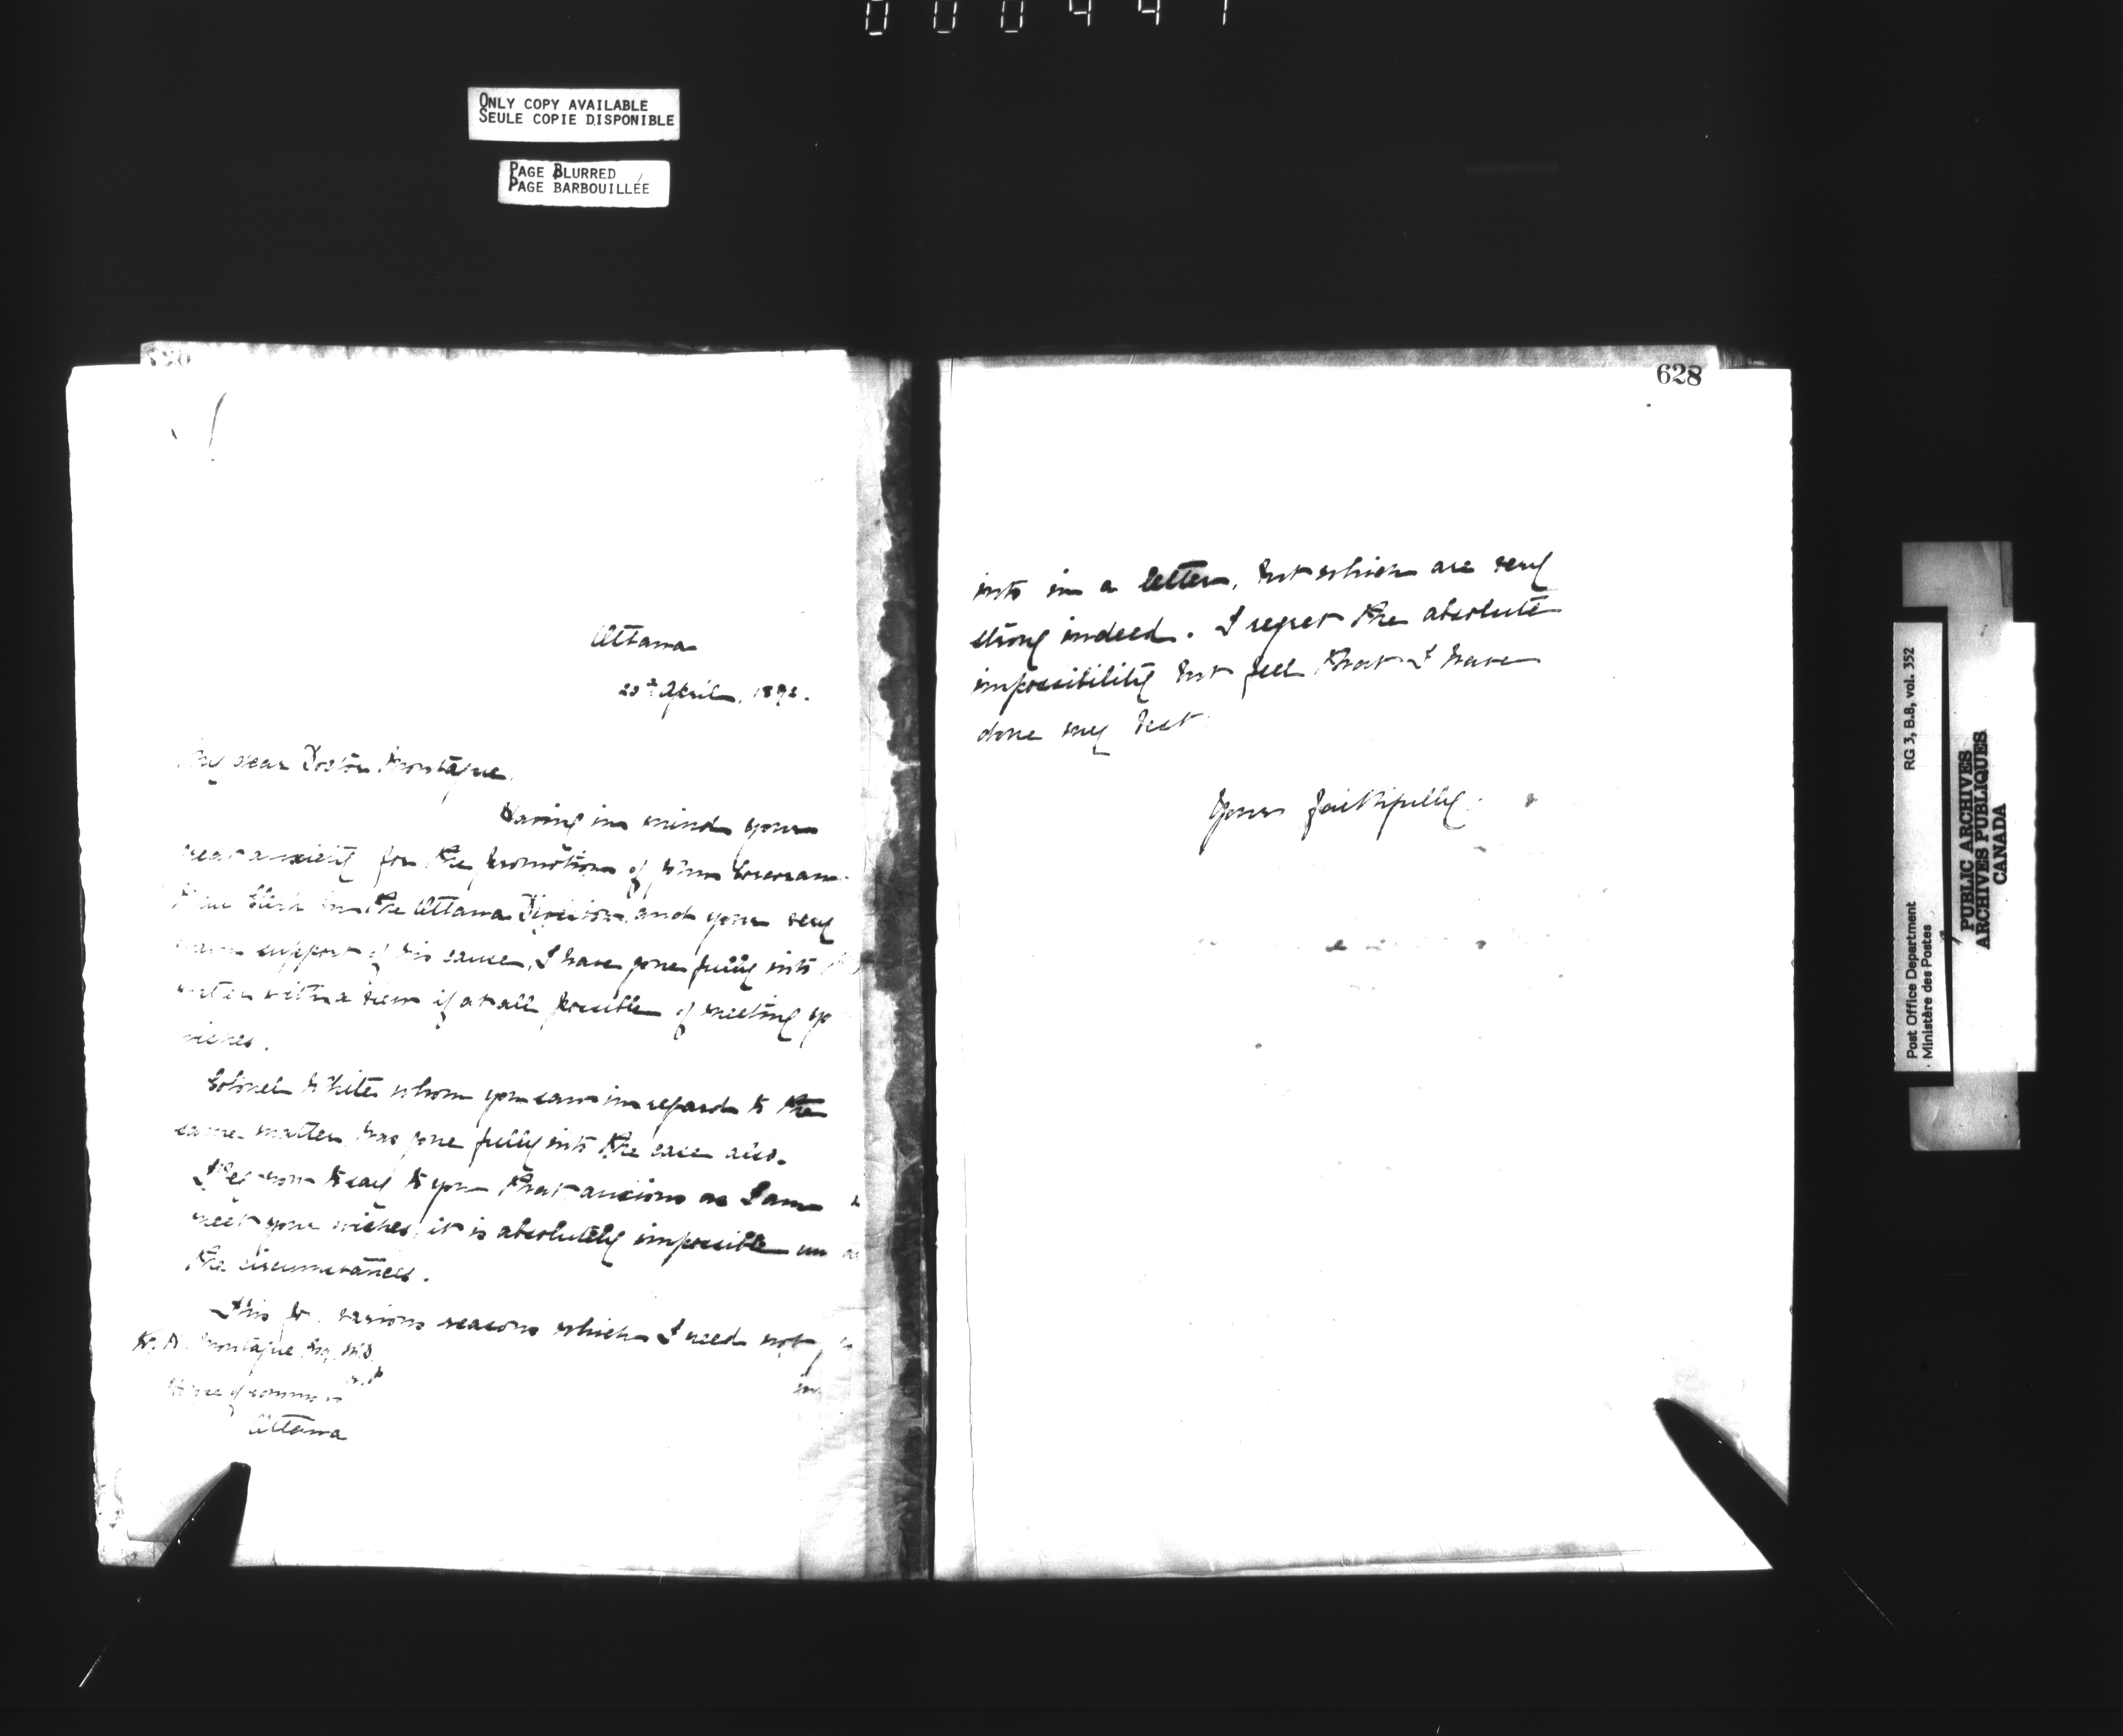 ONLY COPY AVAILABLE
SEULE COPIE DISPONIBLE
PAGE BLURRED
PAGE BARBOUILLÉE
Ottawa
April, 1892.
My dear Doctor Montague,
Having in mind your
great anxiety for the promotion of John
Clerk in the Ottawa Division, and your very
warm support of his cause, I have gone fully into
matter with a view if at all possible of meeting yo
wishes.
Colonel White whom you saw in regard to the
same matter has gone fully into the case also.
I beg now to say to you that anxious as I am
meet your wishes, it is absolutely impossible un
the circumstances.
This for various reasons which I need not
Montague Esq. M.D.
M.P.
House of Commons
Ottawa
628
into in a letter, but which are very
strong indeed. I regret the absolute
impossibility but feel that I have
done my best
Yours faithfully
Post Office Department
Ministère des Postes
RG 3, B.8, vol. 352
PUBLIC ARCHIVES
ARCHIVES PUBLIQUES
CANADA